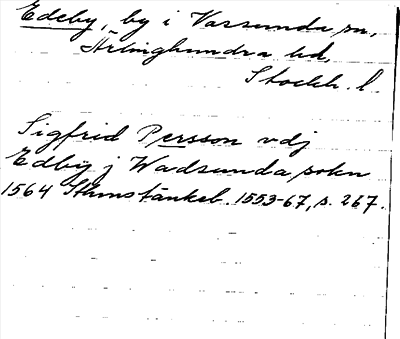 Edeby, by i Vassunda sn,
Ärlinghundra hd,
Stockh. l.
Sigfrid Persson vdj
Edby j Wadsunda sokn
1564 Stämstankeb. 1553-67, s. 267.